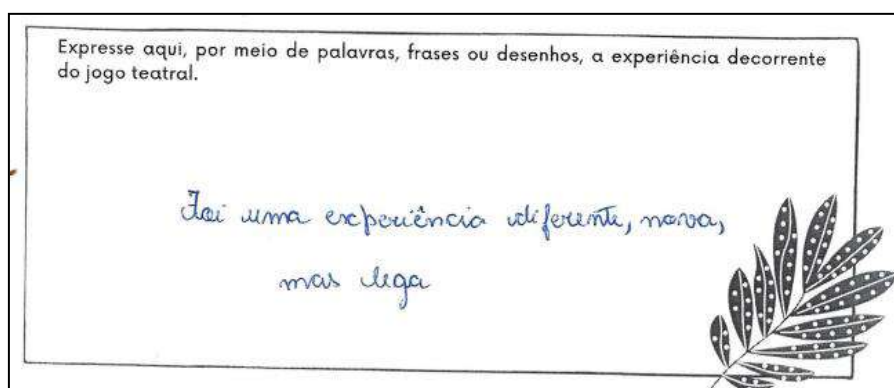 Expresse aqui, por meio de palavras, frases ou desenhos, a experiência decorrente
do jogo teatral.
Foi uma experiência diferente, nova,
mas lega